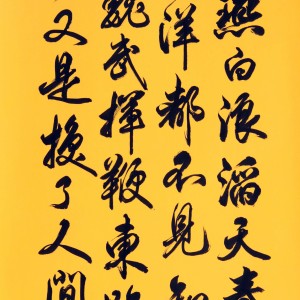 燕白浪滔天秦
洋都不見知
魏武揮鞭東臨
又是換了人間